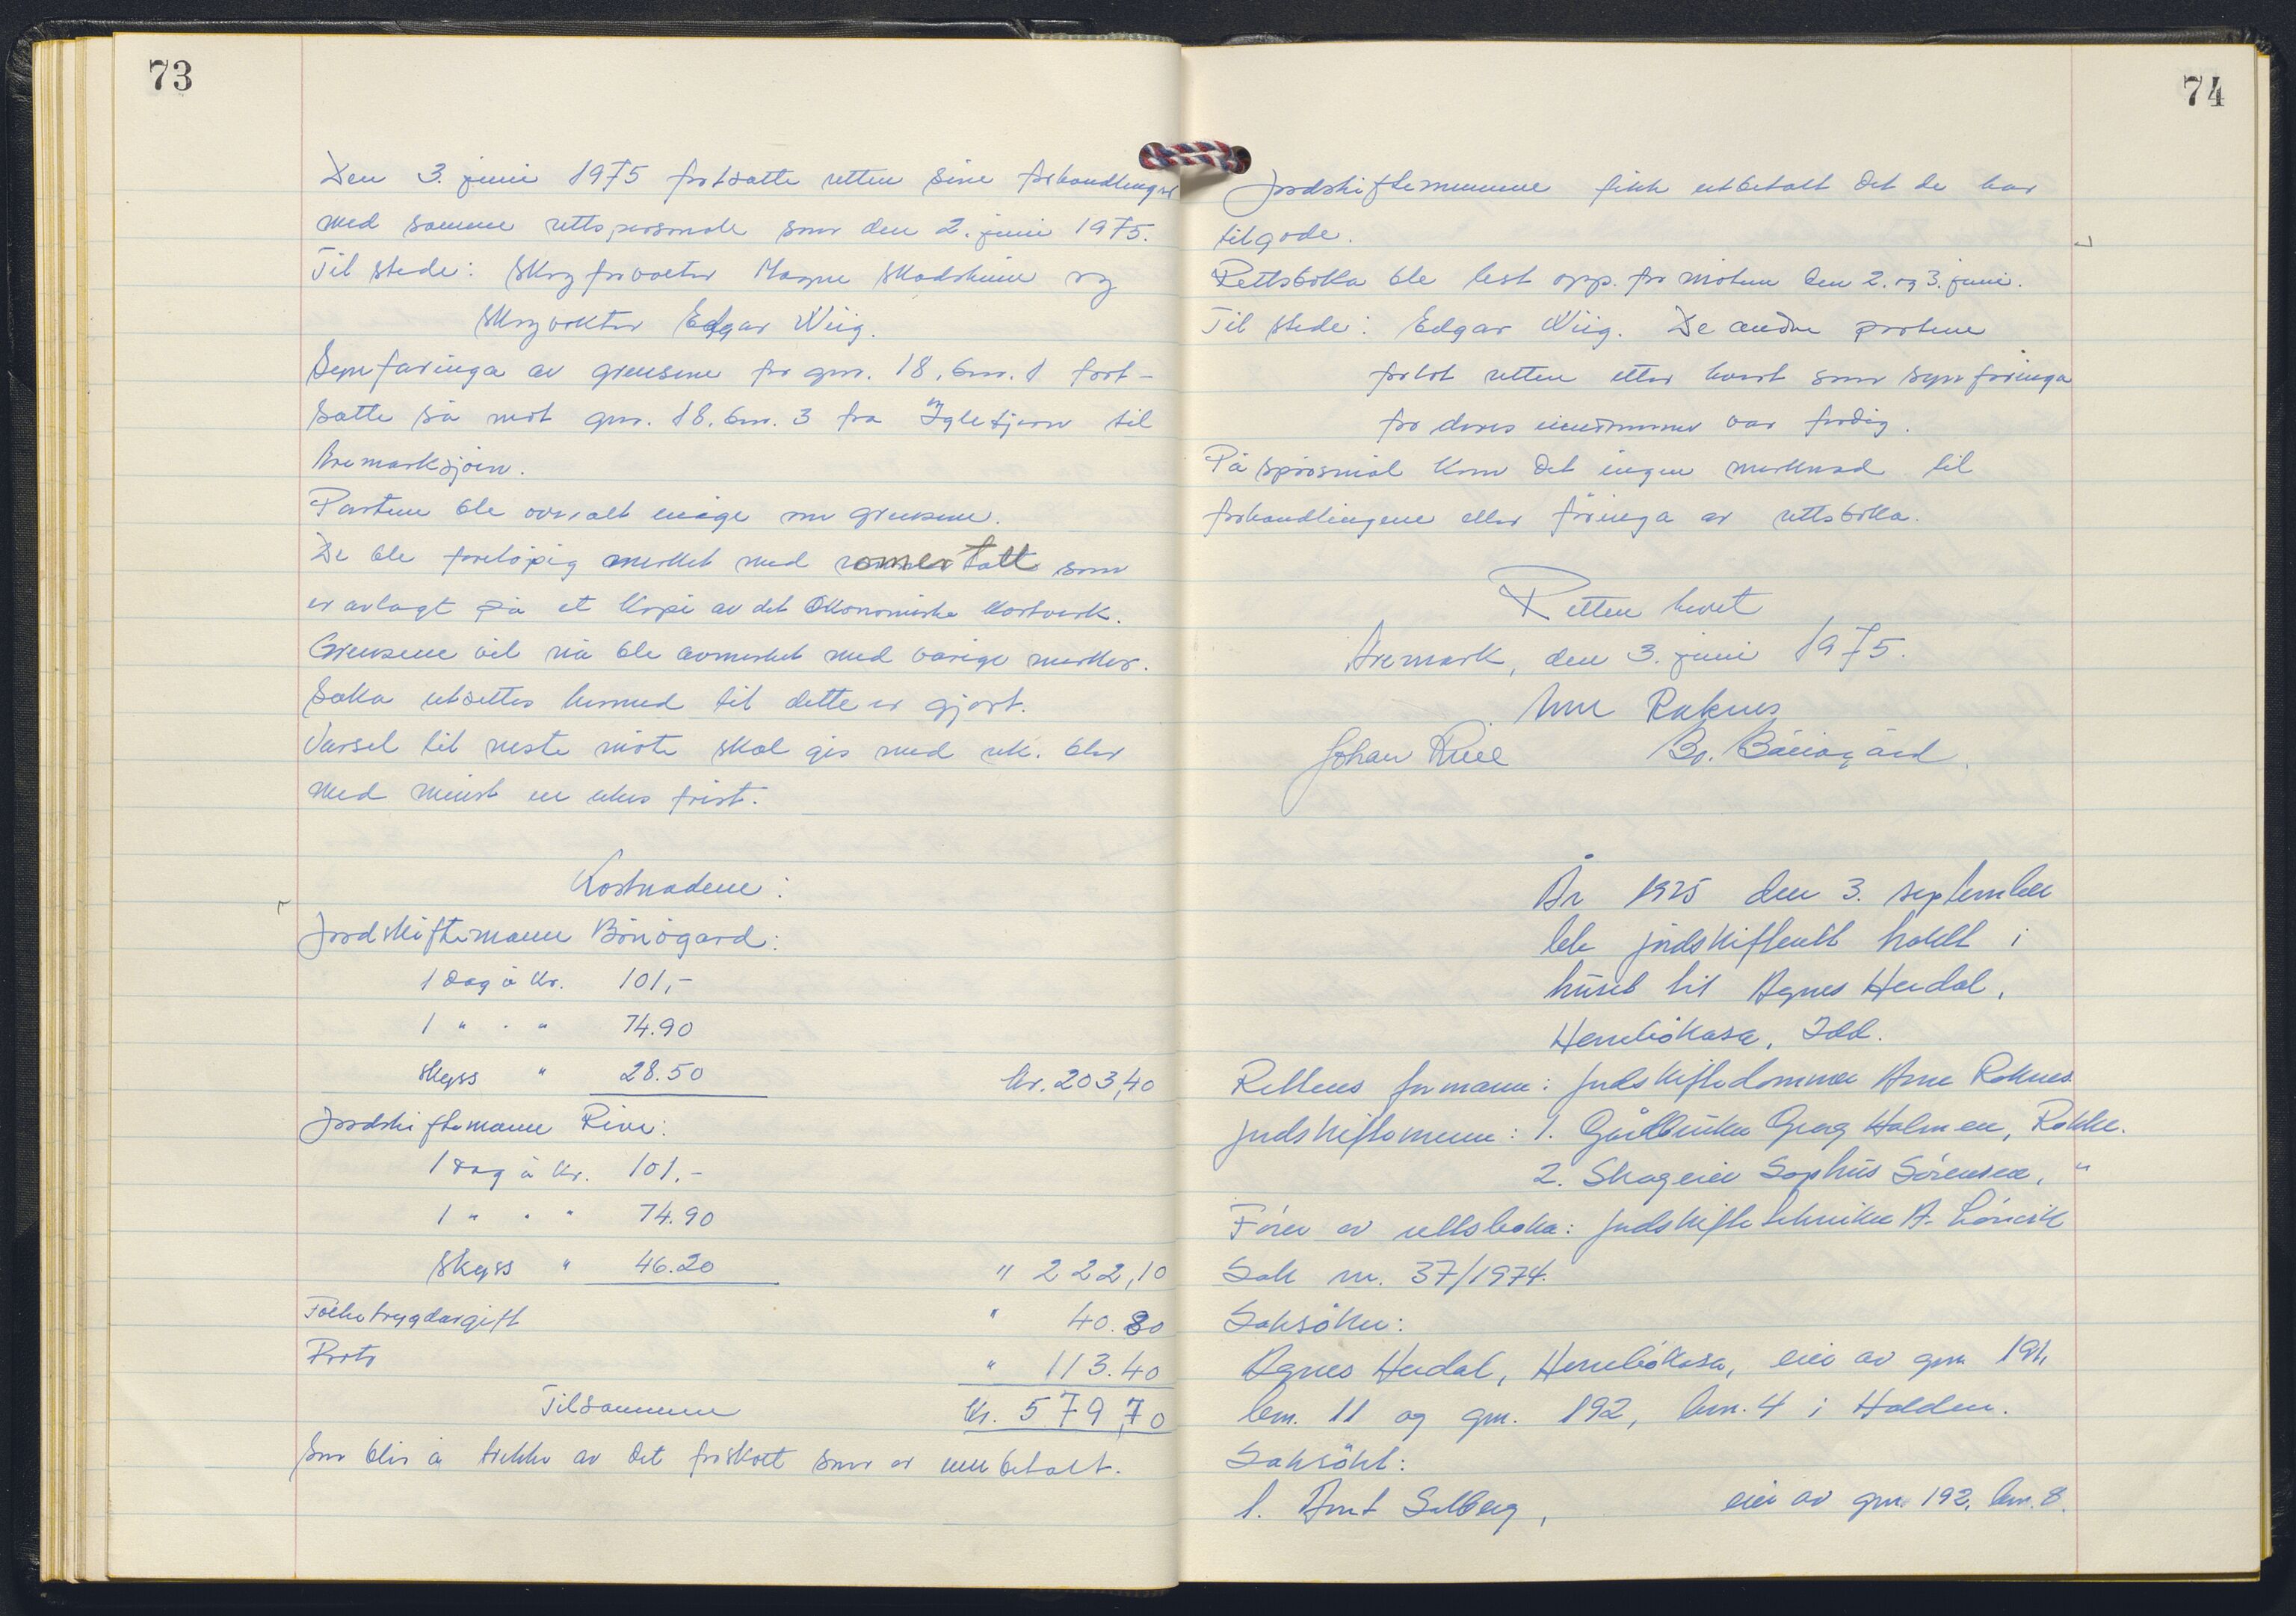 73
Den 3. juni 1975 fortsatte retten sine forhandlinger
med samme rettspersonale som den 2. juni 1975.
Til stede: Skogforvalter Magne Skadsheim og
Skogvokter Edgar Wiig.
Synfaringa av grensene for gnr. 18, bnr. 1 fort-
satte så mot gnr. 18, bnr. 3 fra Igletjern til
Aremarksjøen.
Partene ble overalt enige om grensene.
De ble foreløpig merket med romertall som
er avlagt på et kopi av det Økonomiske kartverk.
Grensene vil nå ble avmerket med varige merker.
Saka utsettes hermed til dette er gjort.
Varsel til neste møte skal gis med rek. brev
med minst en ukes frist.
Kostnadene:
Jordskiftemann Börögard:
1 dag à kr. 101,-
1 " . " 74.90
Skyss " 28.50 kr. 203,40
Jordskiftemann Rive:
1 dag à kr. 101.-
1 " . " 74.90
Skyss " 46.20 " 222,10
Folketrygdavgift " 40.80
Porto " 113.40
Tilsammen kr. 579,70
Som blir å trekke av det forskott som er innbetalt.
74
Jordskiftemennene fikk utbetalt det de har
tilgode.
Rettsboka ble lest opp for møtene den 2. og 3. juni.
Til stede: Edgar Wiig. De andre partene
forlot retten etter hvert som synfaringa
for deres eiendommer var ferdig.
På spørsmål kom det ingen merknad til
forhandlingene eller føringa av rettsboka.
Retten hevet
Aremark, den 3. juni 1975.
Arne Raknes
Johan Rive
År 1975 den 3. september
ble jordskifterett holdt i
huset til Agnes Heidal,
Idd.
Rettens formann: Jordskiftedommer Arne Raknes
Jordskiftemenn: 1. Gårdbruker Georg Holmen, Rokke.
2. Skogeier Sophus Sörensen, "
Fører av rettsboka: Jordskiftetekniker A.
Sak nr. 37/1974.
Saksøker:
Agnes Heidal, eier av gnr. 191,
bnr. 11 og gnr. 192, bnr. 4 i Halden.
Saksøkt:
1. Arnt Solberg, eier av gnr. 192, bnr. 8.